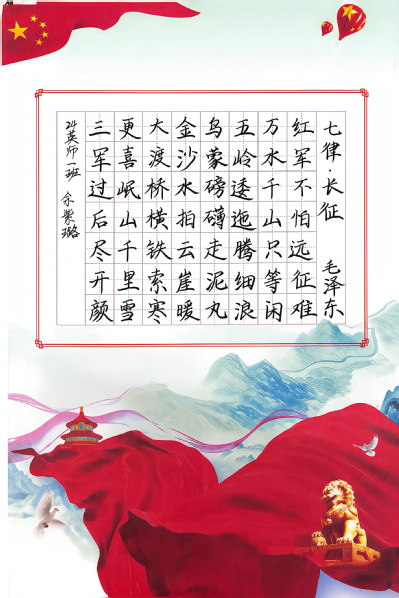 七律·长征
毛泽东
红军不怕远征难
万水千山只等闲
五岭逶迤腾细浪
乌蒙磅礴走泥丸
金沙水拍云崖暖
大渡桥横铁索寒
更喜岷山千里雪
三军过后尽开颜
24英师一班 余紫璐